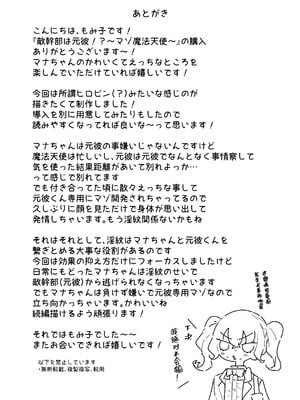 あとがき
こんにちは、もみ子です!
『敵幹部は元彼!?~マゾ魔法天使~』の購入
ありがとうございます~!
マナちゃんのかわいくてえっちなところを
楽しんでいただけていれば嬉しいです!
今回は所謂ヒロピン(?)みたいな感じのが
描きたくて制作しました!
導入を別に用意してみたりもしたので
読みやすくなってれば良いな~って思います!
マナちゃんは元彼の事嫌いじゃないんですけど
魔法天使は忙しいし、元彼は元彼でなんとなく事情察して
気を使った結果距離があいて別れよっか…
って感じで別れてます
でも付き合ってた頃に散々えっちな事して
元彼くん専用にマゾ開発されちゃってるので
久しぶりに顔を見ただけで身体が思い出して
発情しちゃいます。もう淫紋関係ないかもね
それはそれとして、淫紋はマナちゃんと元彼くんを
繋ぎとめる大事な役割があるのです
今回は効果の抑え方だけにフォーカスしましたけど
日常にもどったマナちゃんは淫紋のせいで
敵幹部(元彼)から逃げられなくなっちゃいます
でもマナちゃんは負けず嫌いで元彼専用マゾなので
立ち向かっちゃいます。かわいいね
続編描けるよう頑張ります!
それではもみ子でした~~
またお会いできれば嬉しいです!
以下を禁止しています
・無断転載、複製複写、転用
次は
絶対